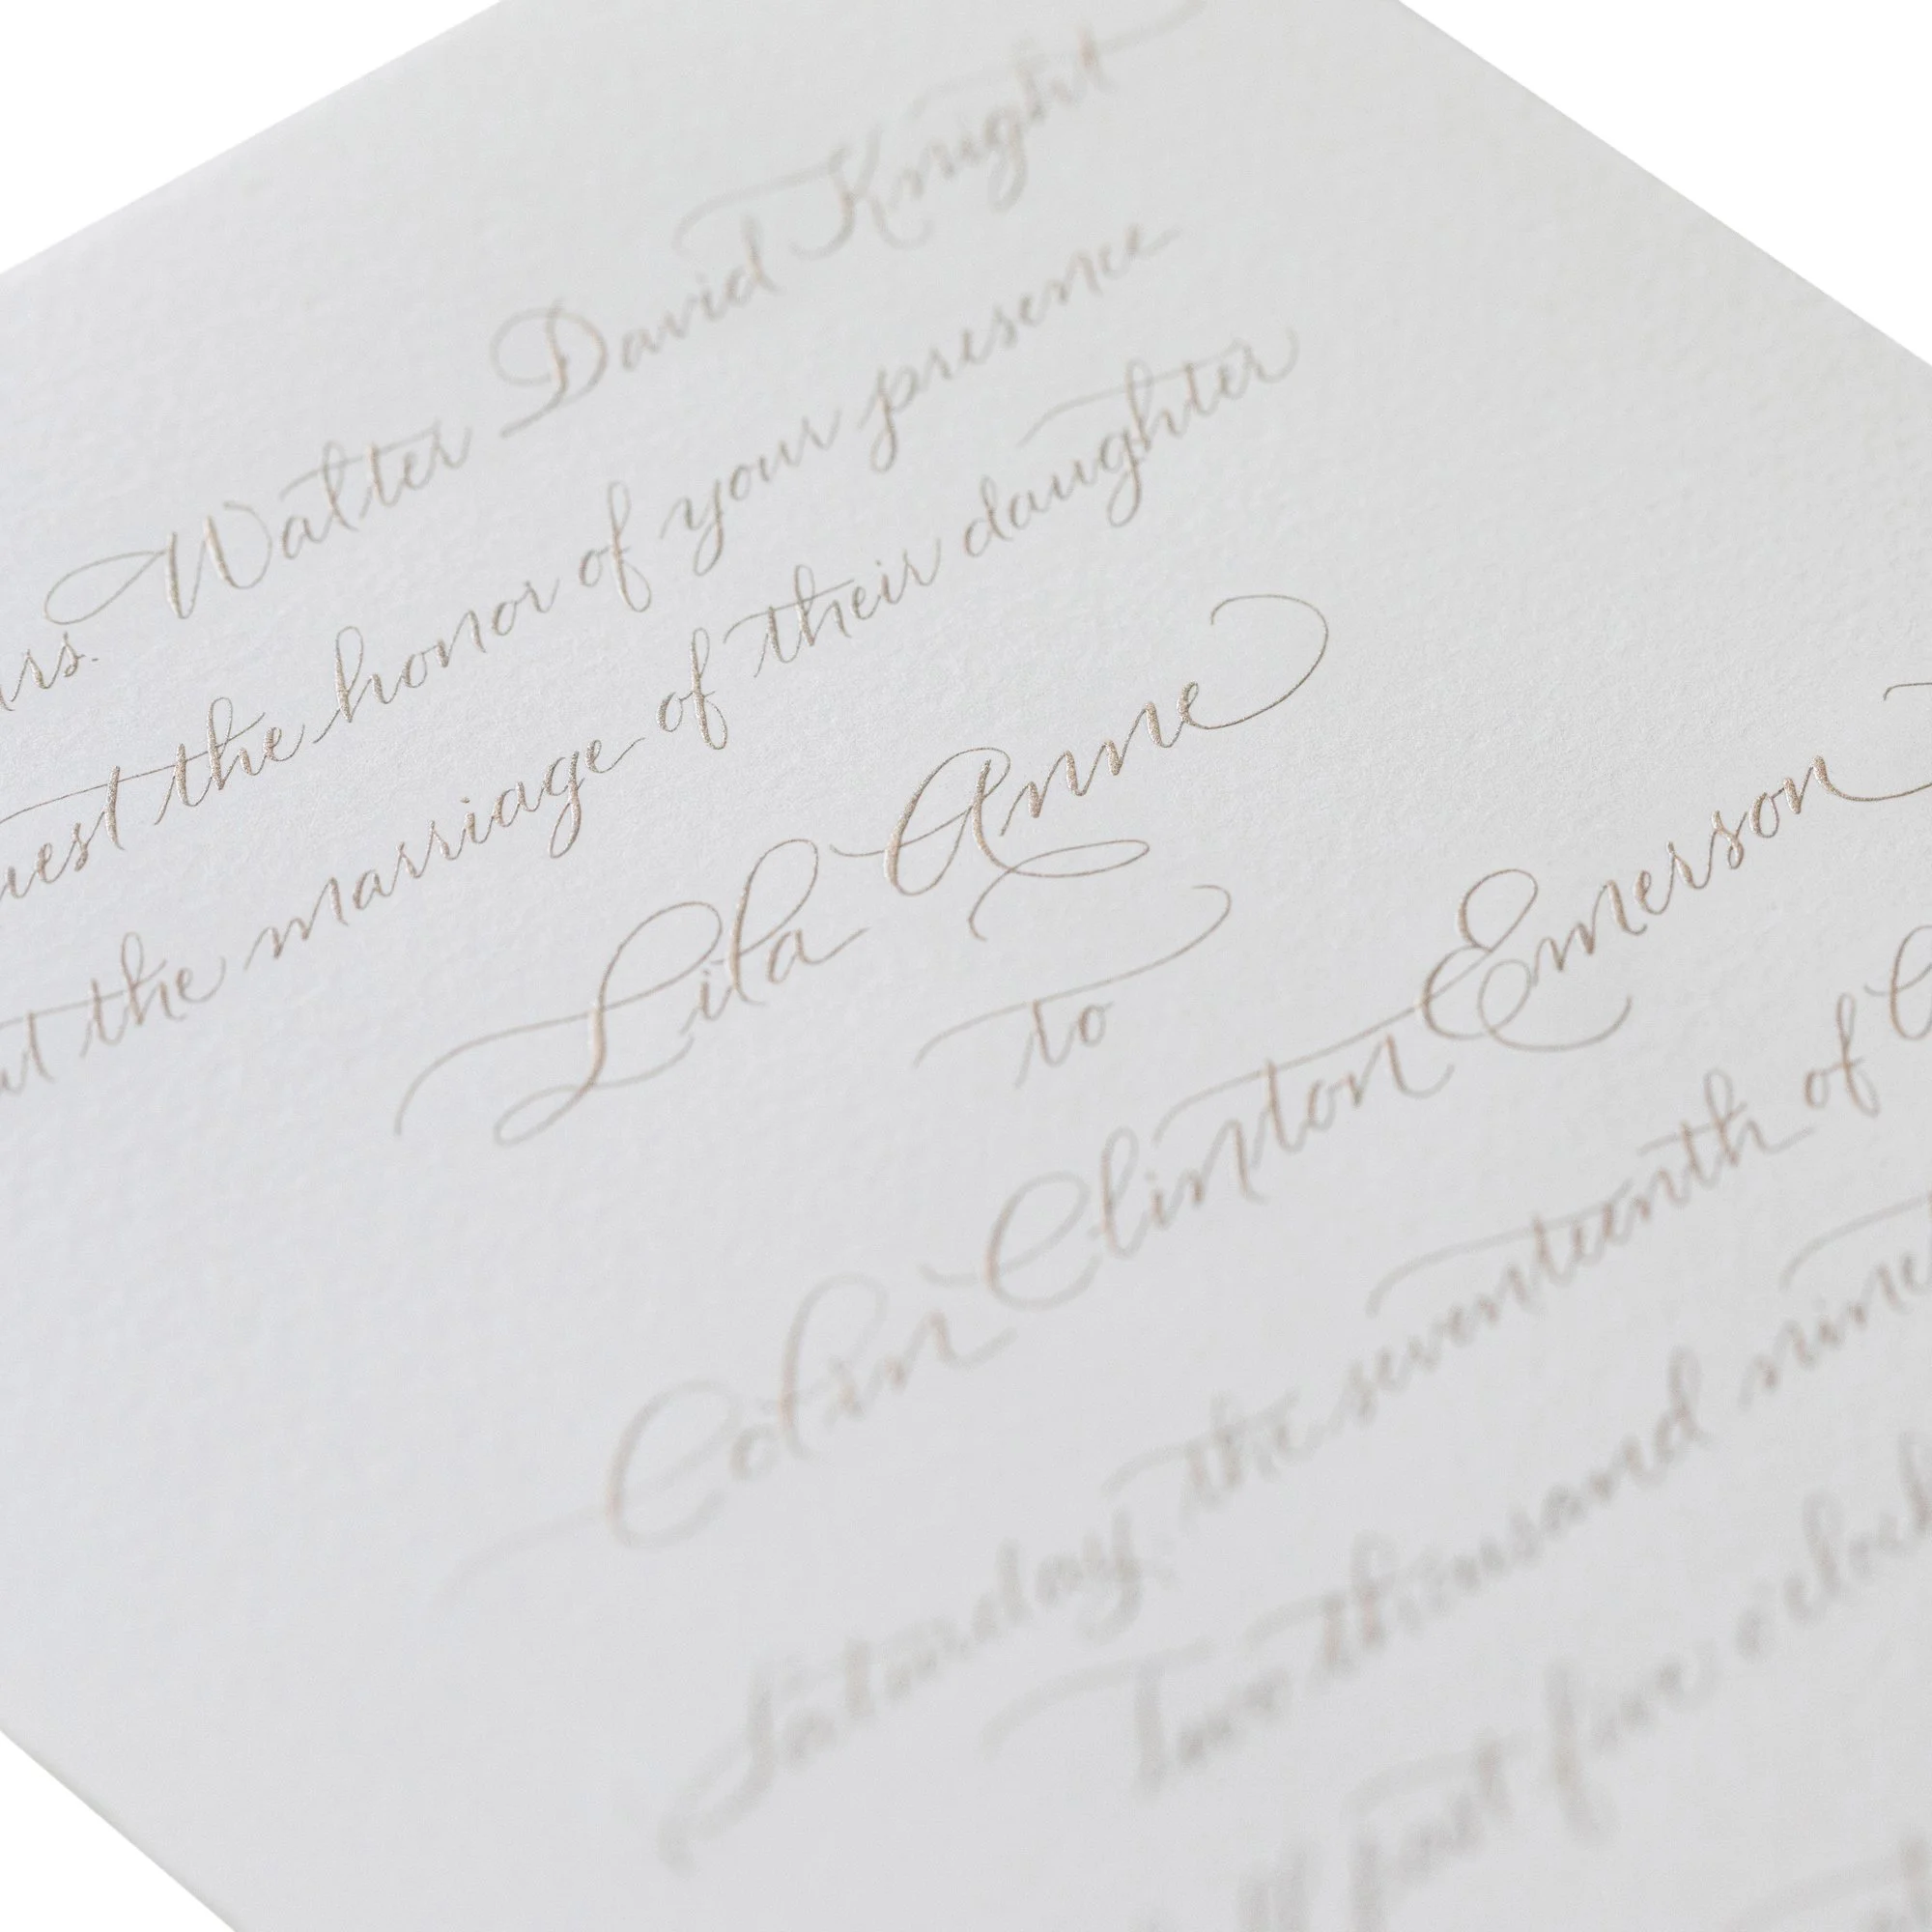 rs. Walter David Knight
uest the honor of your presence
at the marriage of their daughter
Lila Anne
to
Colin Clinton Emerson
Saturday, the seventeenth of
Two thousand nine
half past four o'clock